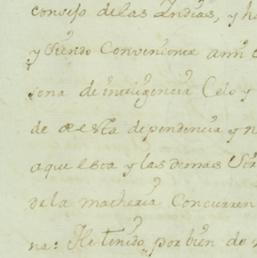 consejo de las Indias, y ha
y siendo Conveniente a mi
sona de inteligencia Celo y
de esta dependencia y
aque esta y las demas
de la materia Concurren
na: He tenido por bien de